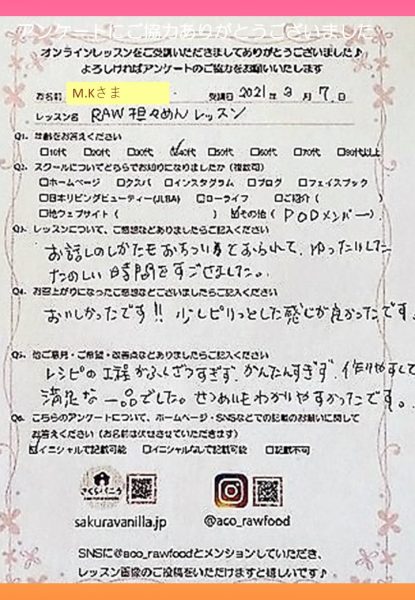 アンケートにご協力ありがとうございました
オンラインレッスンをご受講いただきましてありがとうございました♪
よろしければアンケートのご協力をお願いいたします
お名前 M.Kさま 受講日 2021年 3月 7日
レッスン名 RAW担々めんレッスン
Q1. 年齢をお答えください
□10代 □20代 □30代 ☑40代 □50代 □60代 □70代 □80代以上
Q2. スクールについてどちらでお知りになりましたか（複数可）
□ホームページ □クスパ □インスタグラム □ブログ □フェイスブック
□日本リビングビューティー(JLBA) □ローライフ □ご紹介（ ）
□他ウェブサイト（ ） ☑その他（PODメンバー）
Q3. レッスンについて、ご感想などありましたらご記入ください
お話しのしかたもおちついておられて、ゆったりした
たのしい時間をすごせました。
Q4. お召上がりになったご感想などございましたらご記入ください
おいしかったです!! 少しピリっとした感じが良かったです。
Q5. 他ご意見・ご希望・改善点などありましたらご記入ください
レシピの工程がふくざつすぎず、かんたんすぎず、作りやすくて
満足な一品でした。せつめいもわかりやすかったです。
Q6. こちらのアンケートについて、ホームページ・SNSなどでの記載のお願いに関して
お答えください（お名前は伏せさせていただきます）
☑イニシャルで記載可能 □イニシャルなしで記載可能 □記載不可
さくらバニラ
sakuravanilla.jp @aco_rawfood
SNSに@aco_rawfoodとメンションしていただき、
レッスン画像のご投稿をいただけますと嬉しいです♪